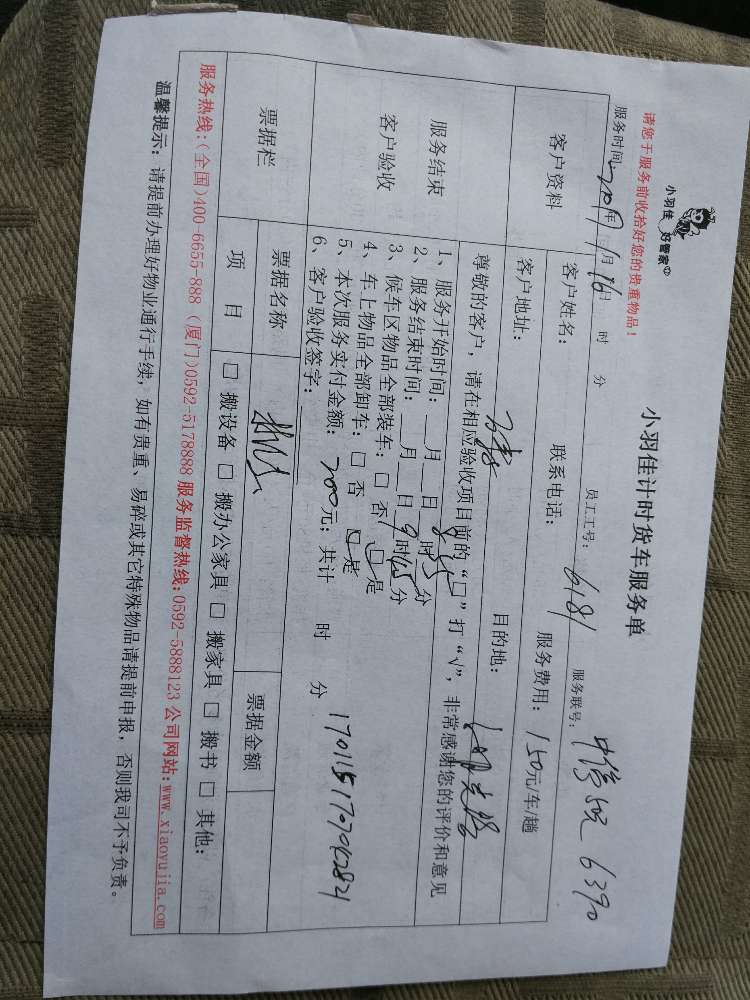 小羽佳 好管家
请您于服务前收拾好您的贵重物品！
小羽佳计时货车服务单
服务时间: 年 1月16日 时 分 员工工号: 6181 服务联号: 6390
客户资料
客户姓名: 联系电话: 服务费用: 150元/车/趟
客户地址: 目的地:
服务结束
客户验收
尊敬的客户，请在相应验收项目前的“□”打“√”，非常感谢您的评价和意见
1、服务开始时间: 月 日 8时55分
2、服务结束时间: 月 日 9时45分
3、候车区物品全部装车: □ 否 □ 是
4、车上物品全部卸车: □ 否 □ 是
5、本次服务实付金额: 200元; 共计 时 分
6、客户验收签字:
票据栏
票据名称 票据金额
项 目 □ 搬设备 □ 搬办公家具 □ 搬家具 □ 搬书 □ 其他:
服务热线:(全国)400-6655-888 (厦门)0592-5178888 服务监督热线:0592-5888123 公司网站:www.xiaoyujia.com
温馨提示: 请提前办理好物业通行手续, 如有贵重、易碎或其它特殊物品请提前申报, 否则我司不予负责。